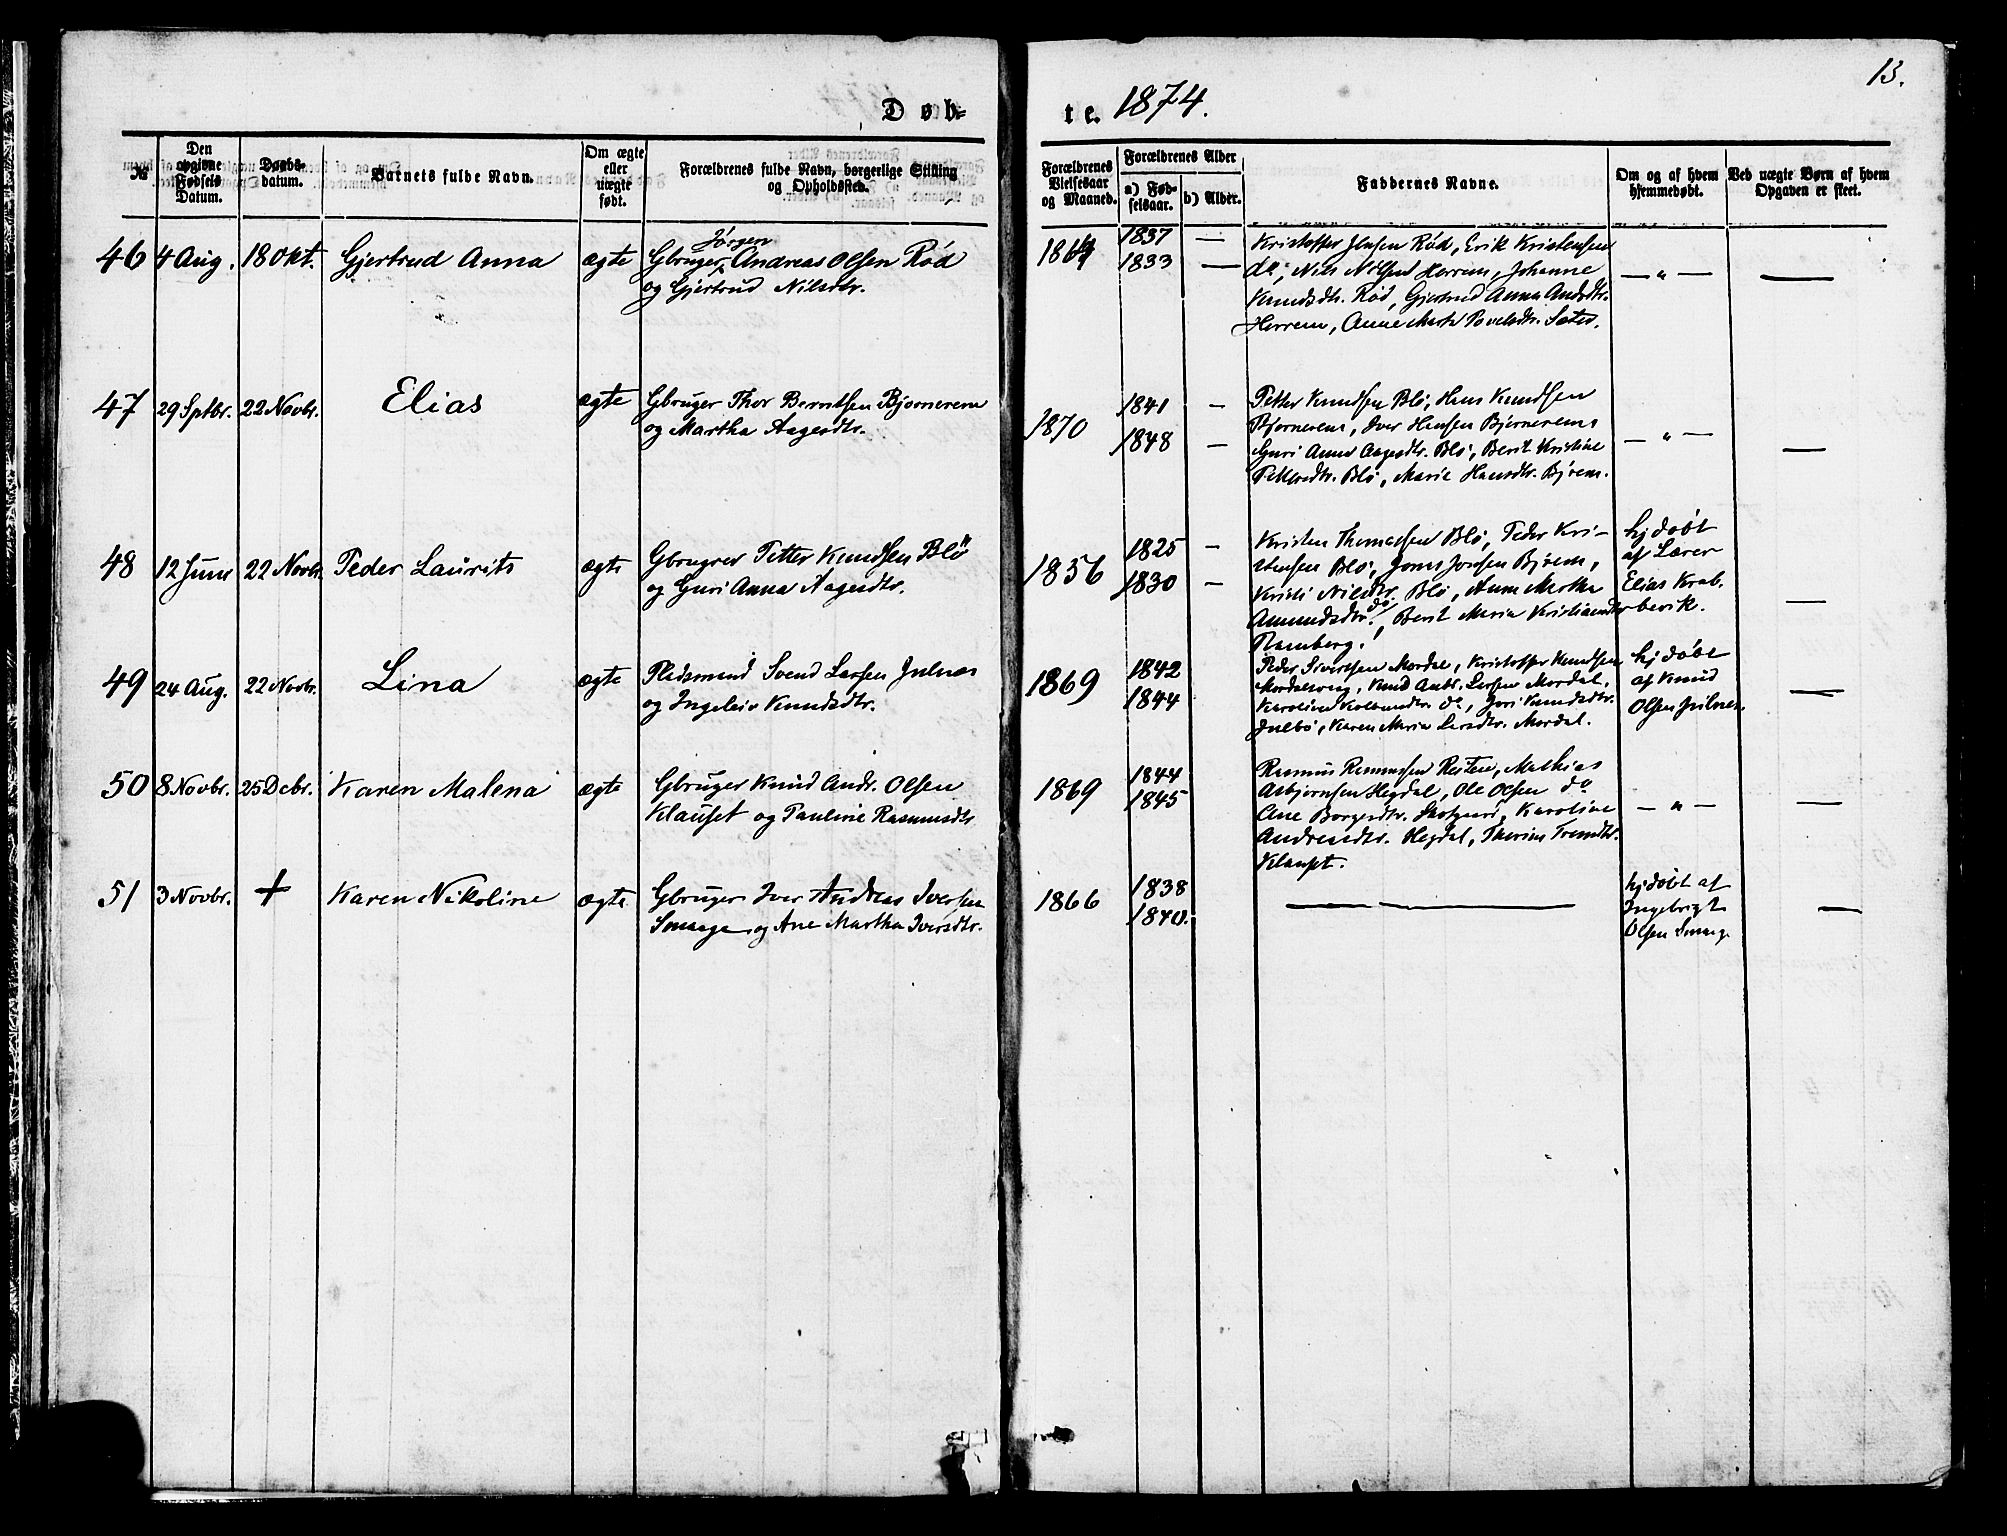 13.
Døb-
te. 1874.
№
Den opgivne Fødsels Datum.
Daabs-datum.
Barnets fulde Navn.
Om ægte eller uægte født.
Forældrenes fulde Navn, borgerlige Stilling og Opholdssted.
Forældrenes Vielsesaar og Maaned.
Forældrenes Alder
a) Fød-selsaar.
b) Alder.
Faddernes Navne.
Om og af hvem hjemmedøbt.
Ved uægte Børn af hvem Opgaven er skeet.
46 4 Aug. 18 Okt. Gjertrud Anna ægte
Jörgen
Gbruger Andreas Olsen Rød
og Gjertrud Nilsdtr.
1837 —
1833 —
Kristoffer Jensen Rød, Erik Kristensen
do, Nils Nilsen Herrem, Johanne
Knudsdtr. Rød, Gjertrud Anna Andrsdtr.
Herrem, Anne Marta Povelsdtr. Sæter.
— " —
—
47 29 Sptbr. 22 Novbr. Elias ægte
Gbruger Thor Berntsen Bjornerem
og Martha Aagesdtr.
1870
1841 —
1848 —
Petter Knudsen Blö, Hans Knudsen
Bjornerem, Iver Hansen Bjørnerem
Guri Anna Aagesdtr. Blö, Berit Kristine
Pettersdtr. Blö, Marie Hansdtr. Björem.
— " —
—
48 12 Juni 22 Novbr. Peder Laurits ægte
Gbruger Petter Knudsen Blö
og Guri Anna Aagesdtr.
1856
1825 —
1830 —
Kristen Thomassen Blö, Peder Kri-
stensen Blö, Jonas Jonsen Björem,
Kristi Nilsdtr. Blö, Anne Martha
Amundsdtr. do, Berit Maria Kristiansdtr
Ramberg.
hjdøbt
af Lærer
Elias Krab-
bevik.
—
49 24 Aug. 22 Novbr. Lina ægte
Pladsmand Svend Larsen Julnæs
og Ingeleiv Knudsdtr.
1869
1842
1844
Peder Sivertsen Mordal, Kristoffer Knudsen
Mordalsvug, Knud Andr. Larsen Mordal,
Karoline do, Guri Knudsdtr.
Julbö, Karen Maria Larsdtr. Mordal.
hjdøbt
af Knud
Olsen Julnæs.
—
50 8 Novbr. 25 Dcbr. Karen Malena ægte
Gbruger Knud Andr. Olsen
Klauset og Pauline Rasmusdtr
1869
1844
1845
Rasmus Rasmussen Resten, Mathias
Asbjørnsen Hegdal, Ole Olsen do
Ane Borgesdtr. Skotgaard, Karoline
Andreasdtr. Hegdal, Trondtr.
Klauset.
— " —
—
51 3 Novbr. + Karen Nikoline ægte
Gbruger Iver Andreas Iversen
Smaage og Ane Martha Iversdtr.
1866
1838
1840.
—
hjdøbt af
Ingebrigt
Olsen Smaage
—